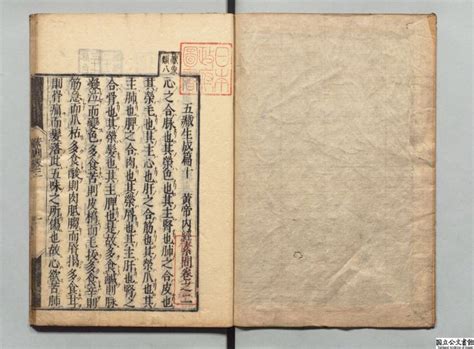 日本
政府
圖書
五藏生成篇十 黃帝內經素問卷之二
心之合脉也其榮色也其主腎也肺之合皮也
其榮毛也其主心也肝之合筋也其榮爪也其
主肺也脾之合肉也其榮脣也其主肝也腎之
合骨也其榮髮也其主脾也是故多食鹹則脉
凝泣而變色多食苦則皮槁而毛拔多食辛則
筋急而爪枯多食酸則肉胝䐢而脣揭多食甘
則骨痛而髮落此五味之所傷也故心欲苦肺
国立公文書館